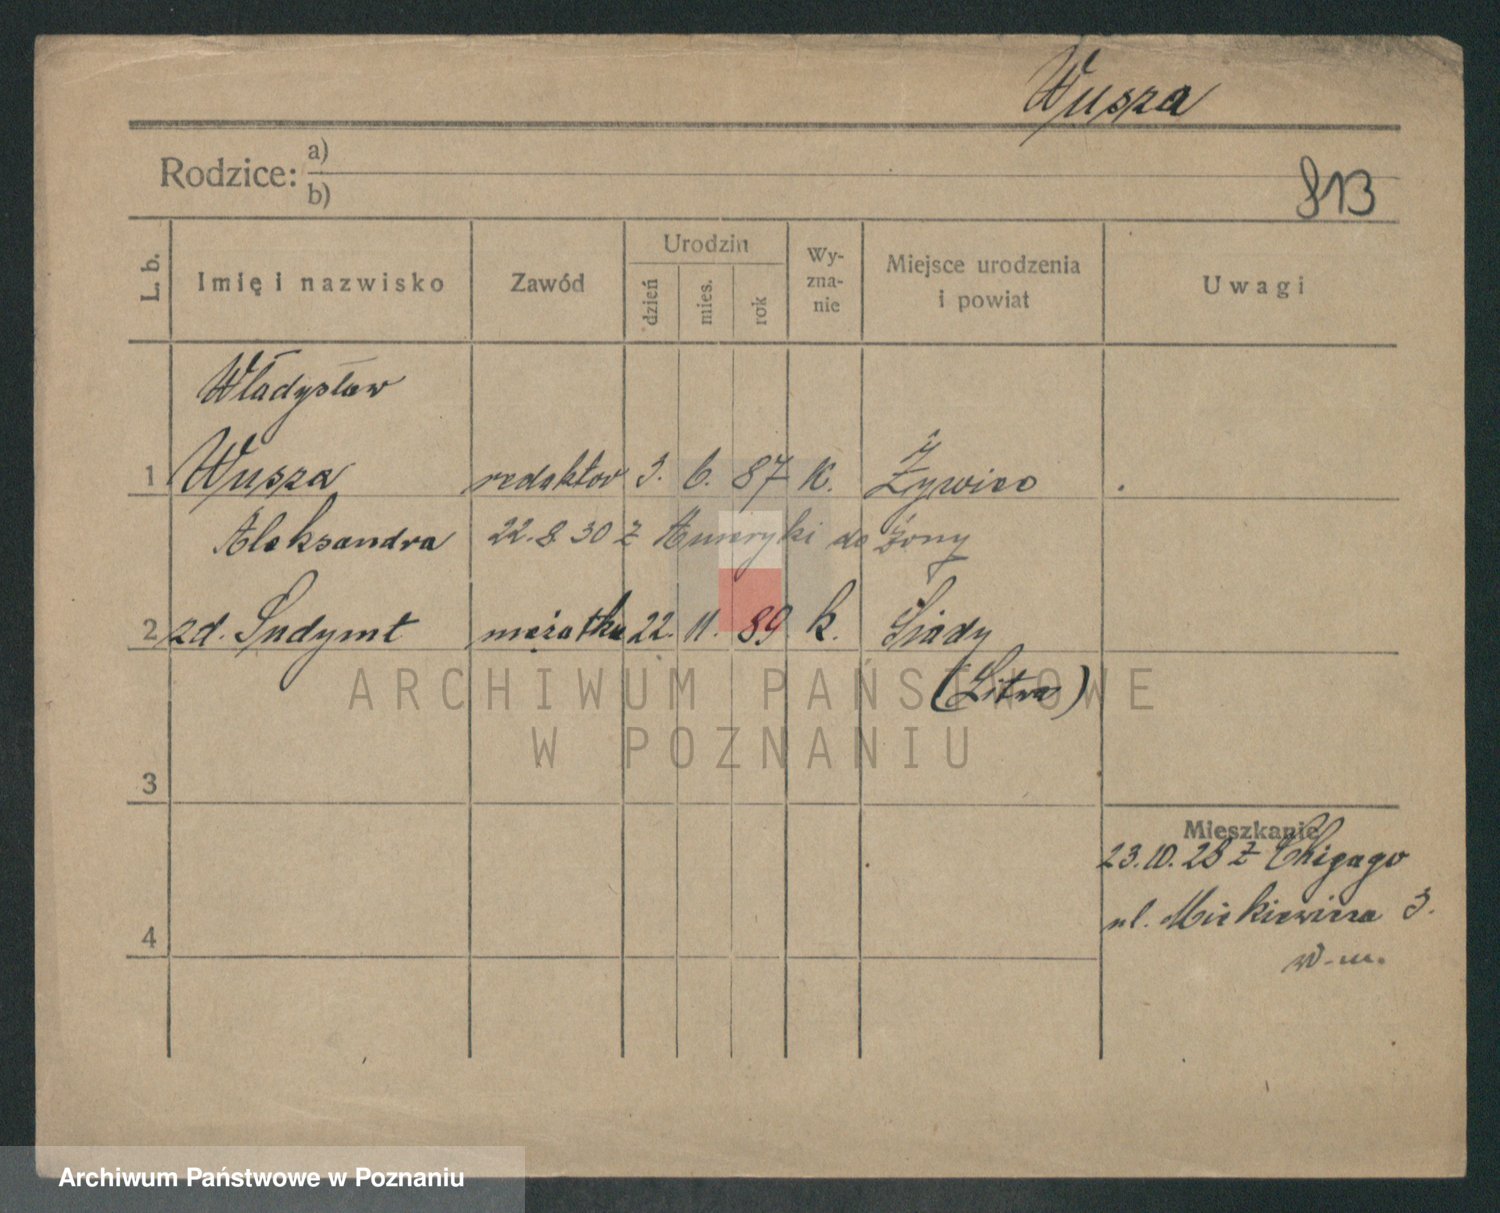 Wusza
Rodzice: a)
b)
813
L. b. Imię i nazwisko Zawód Urodzin dzień mies. rok Wy-zna-nie Miejsce urodzenia i powiat Uwagi
Władysław
1 Wusza redaktor 3. 6. 87 K. Żywiec
Aleksandra 22.8.30 z Ameryki do żony
2 zd. Sudymt mężatka 22. 11. 89. k. Siady
(Litwa)
ARCHIWUM PAŃSTWOWE
W POZNANIU
3
Mieszkanie
23.10.28 z Chigago
ul. Mickiewicza 3.
4
w-m.
Archiwum Państwowe w Poznaniu